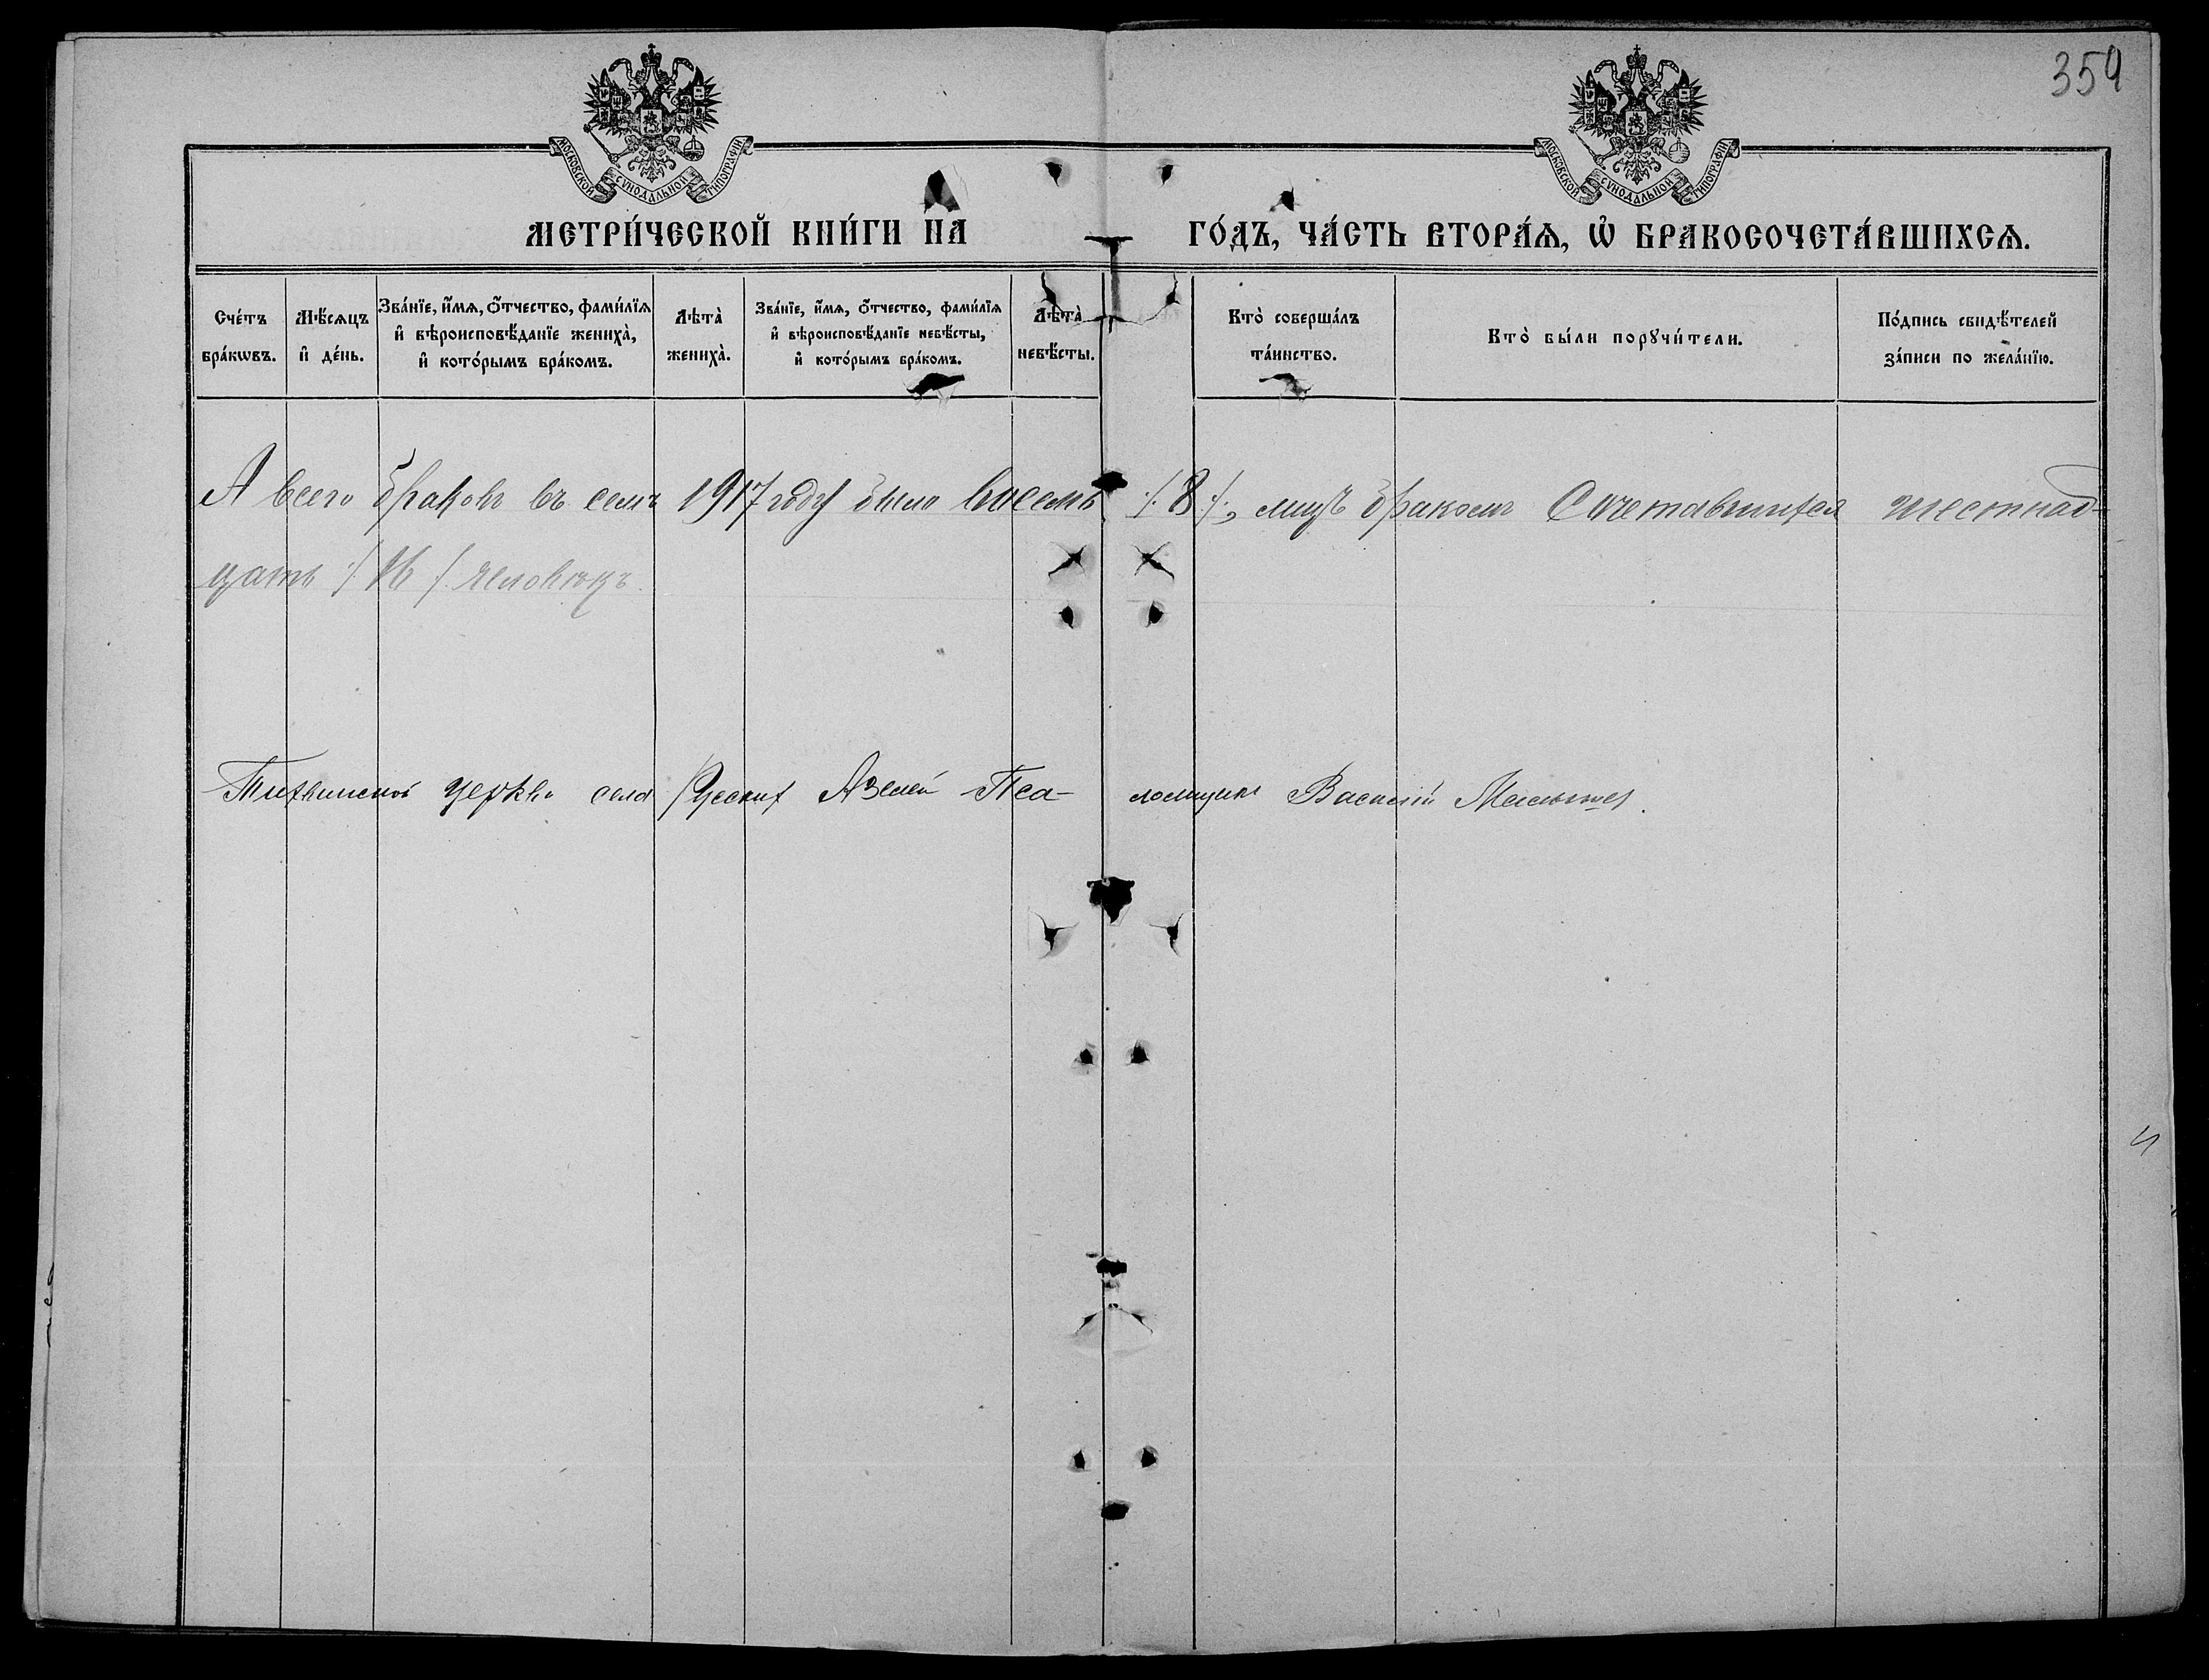 359
МОСКОВСКОЙ СѴНОДАЛЬНОЙ ТИПОГРАФІИ
МОСКОВСКОЙ СѴНОДАЛЬНОЙ ТИПОГРАФІИ
МЕТРИ́ЧЕСКОЙ КНИ́ГИ НА ГО́ДЪ, ЧА́СТЬ ВТОРА́Ѧ, Ѽ БРАКОСОЧЕТА́ВШИХСѦ.
Сче́тъ бра́кѡвъ.
Мѣ́сѧцъ и҆ де́нь.
Зва́нїе, и҆́мѧ, ѻ҆́тчество, фами́лїѧ и҆ вѣроисповѣ́данїе жениха̀, и҆ кото́рымъ бра́комъ.
Лѣта̀ жениха̀.
Зва́нїе, и҆́мѧ, ѻ҆́тчество, фами́лїѧ и҆ вѣроисповѣ́данїе невѣ́сты, и҆ кото́рымъ бра́комъ.
Лѣта̀ невѣ́сты.
Кто̀ соверша́лъ та́инство.
Кто̀ бы́ли порꙋчи́тели.
По́дпись свидѣ́телей за́писи по жела́нїю.
А всего браковъ въ семъ 1917 году было восемь /.8./, лицъ бракомъ Сочетавшихся шестнад-
цать /.16./ человѣкъ.
Тихвинской церкви села Русских Азелей Пса- ломщикъ Василій